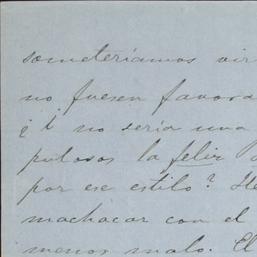 someteríamos
no fuesen favora
¿ i no sería una
pulosos la feliz
por ese estilo? He
machacar con el
menos malo. El